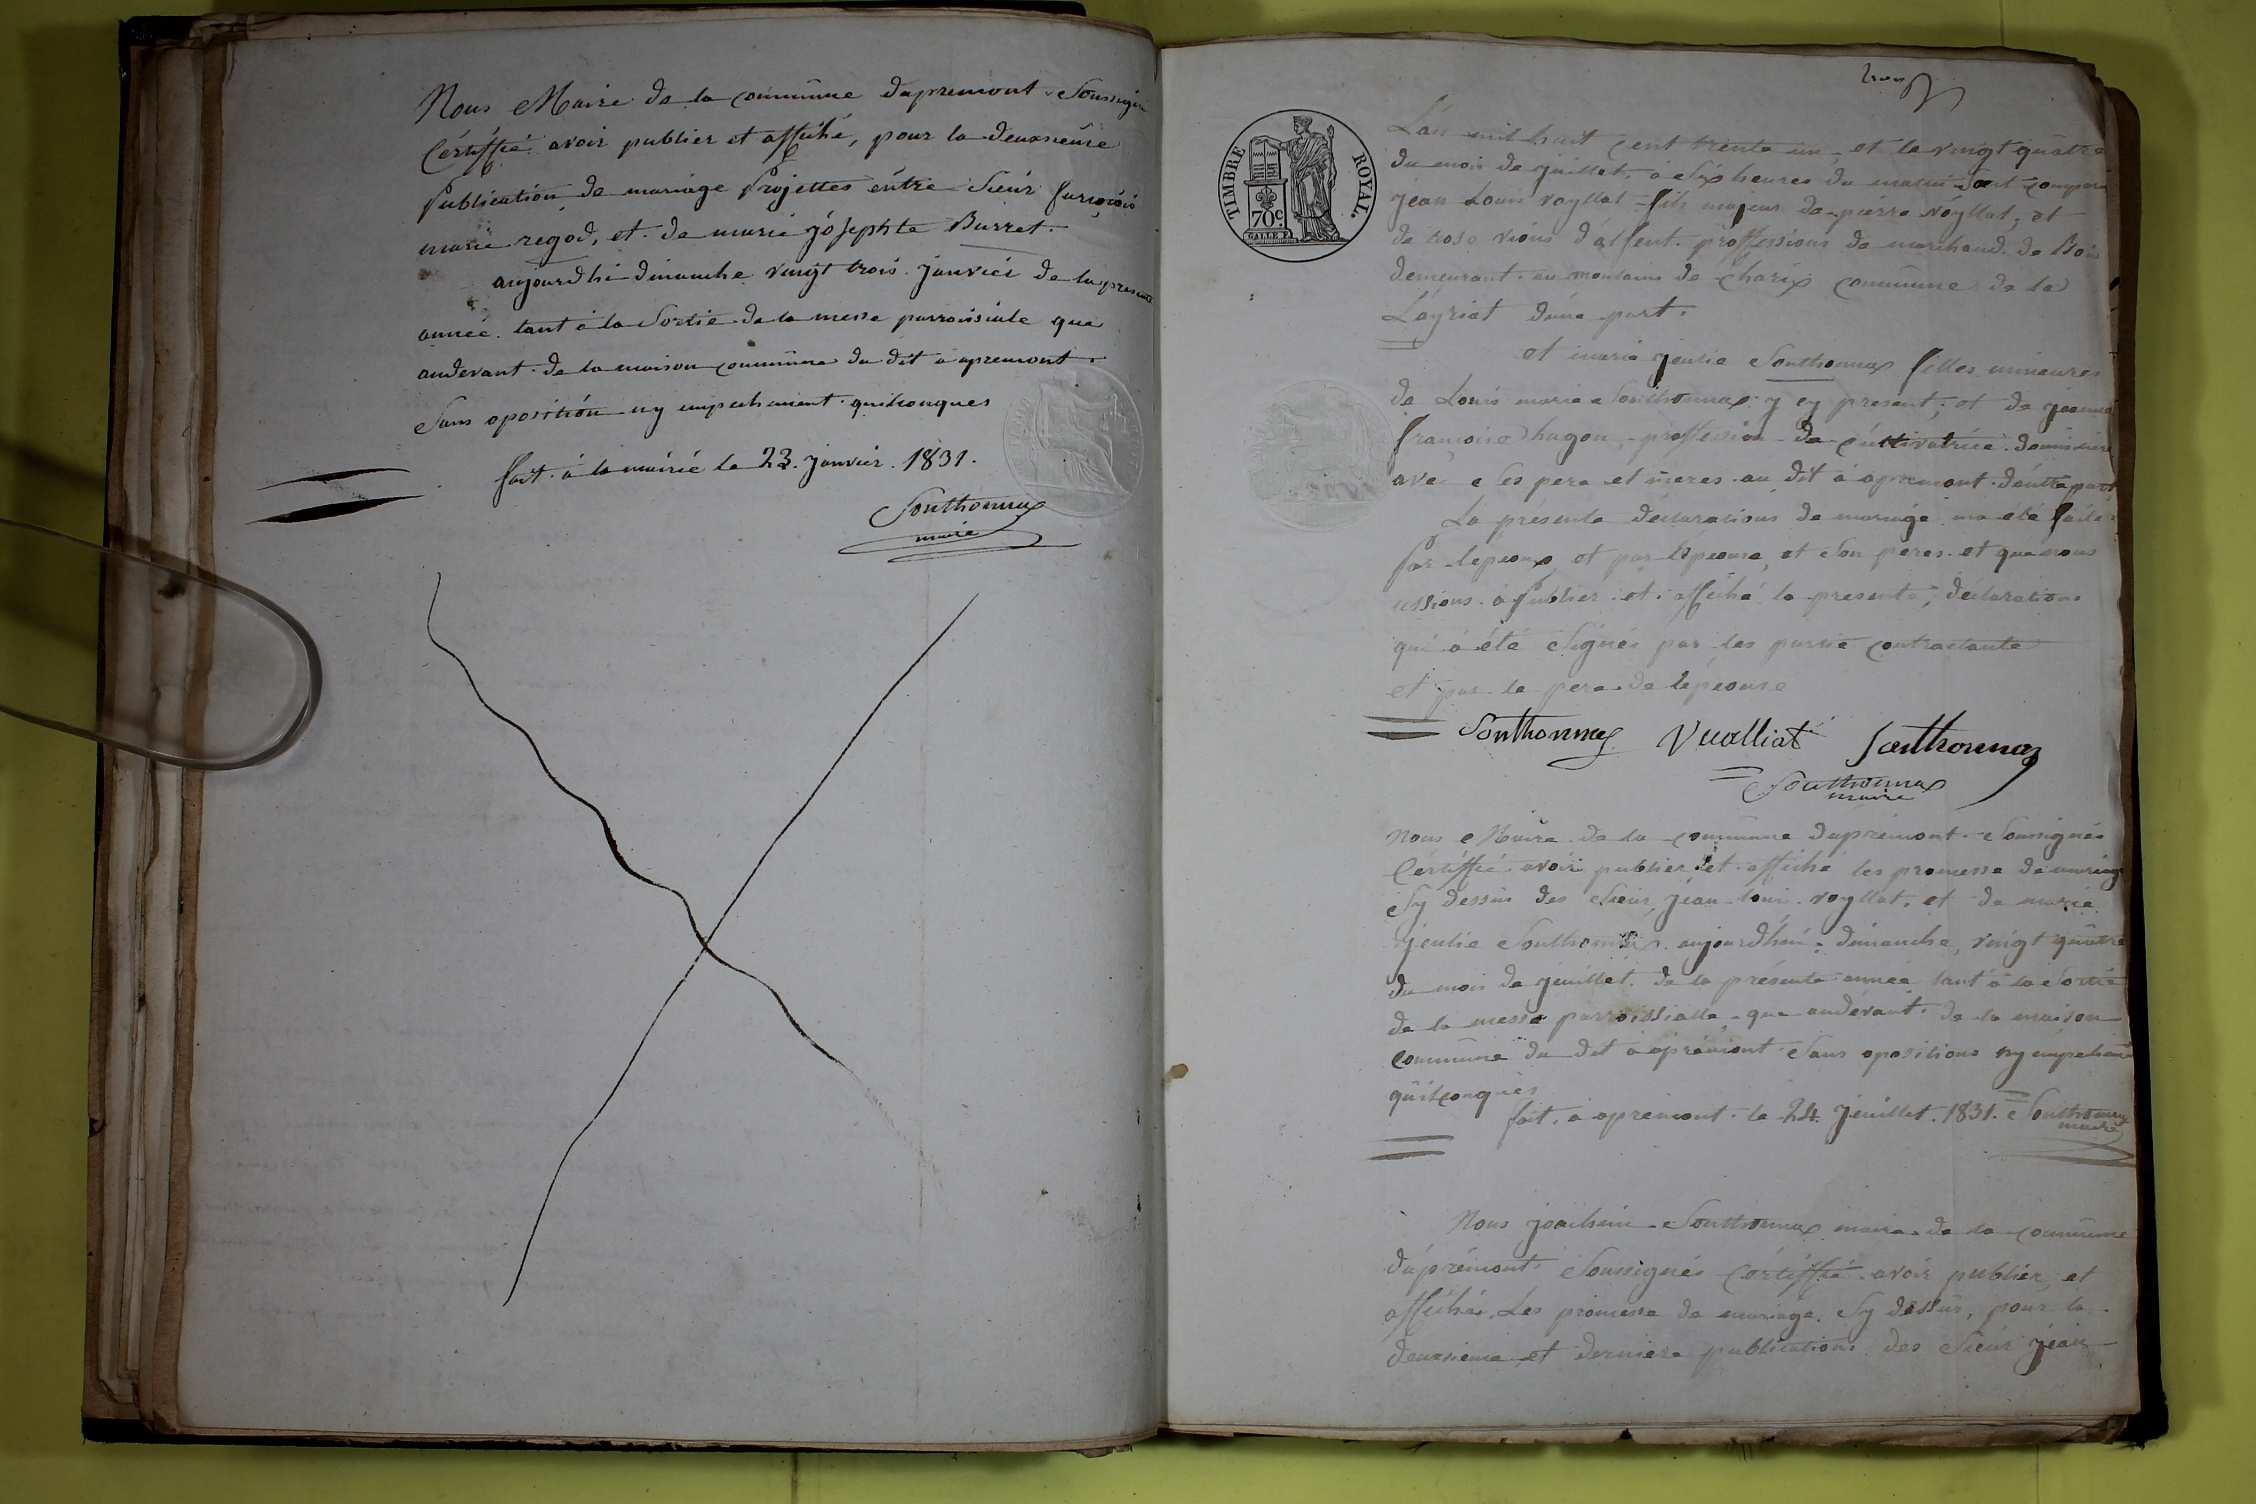 Nous Maire de la commune dapremont Soussigné
Certiffié avoir publier et affiché, pour la deuxsieme
publication de mariage projettes entre Sieur françois
marie regod, et de marie joséphte Burret.
aujourdhi dimanche vingt trois janvier de la presente
année tant à la Sortie de la messe parroissiale que
audevant de la maison commune du dit a apremont.
Sans oposition ny empechement quilconques
fait à la mairie le 23 janvier 1831.
Southonnax
maire
trois
TIMBRE ROYAL.
70c.
Lan mil huit cent trente un, et le vingt quatre
du mois de juillet, à Six heures du matin Sont compara
jean Louis voyllat fils majeur de pierre voyllat, et
de proffessions de marchand de Bois
demeurant au montains de Charix commune de la
Layriat dune part.
et marie jeulie Southonnax filles mineures
de Louis marie Southonnax y cy present, et de jeanne
françoise hugon, proffession de cultivatrice
avec Ses pere et meres au dit à apremont dautre part
La présente déclarations de mariage ma été faite
par lepeoux et par lépeouse, et Son peres et que nous
ussions à publier et affiché la presente, déclarations
qui à été Signés par les partie contractante
et par le pere de lépeouse
Southonnax Vualliat Southonnax
Southonnax
maire
Nous Maire de la commune daprémont Soussignés
Certiffié avoir publier et affiché les promesse de mariage
Sy dessus des Sieur jean Louis voyllat, et de marie
jeulie Southonnax aujourdhui dimanche, vingt quatre
du mois de jeuillet de la présente année tant à la Sortie
de la messe parroissialle, que audevant de la maison
commune du dit a apremont Sans opositions ny empechem
quilconques
fait à apremont le 24 jeuillet 1831. Southonnax
maire
Nous joachim Southonnax maire de la commune
daprémont Soussignés Certiffié avoir publier et
affichée Les promesse de mariage Sy dessus, pour la
deuxsieme et derniere publications des Sieur jean